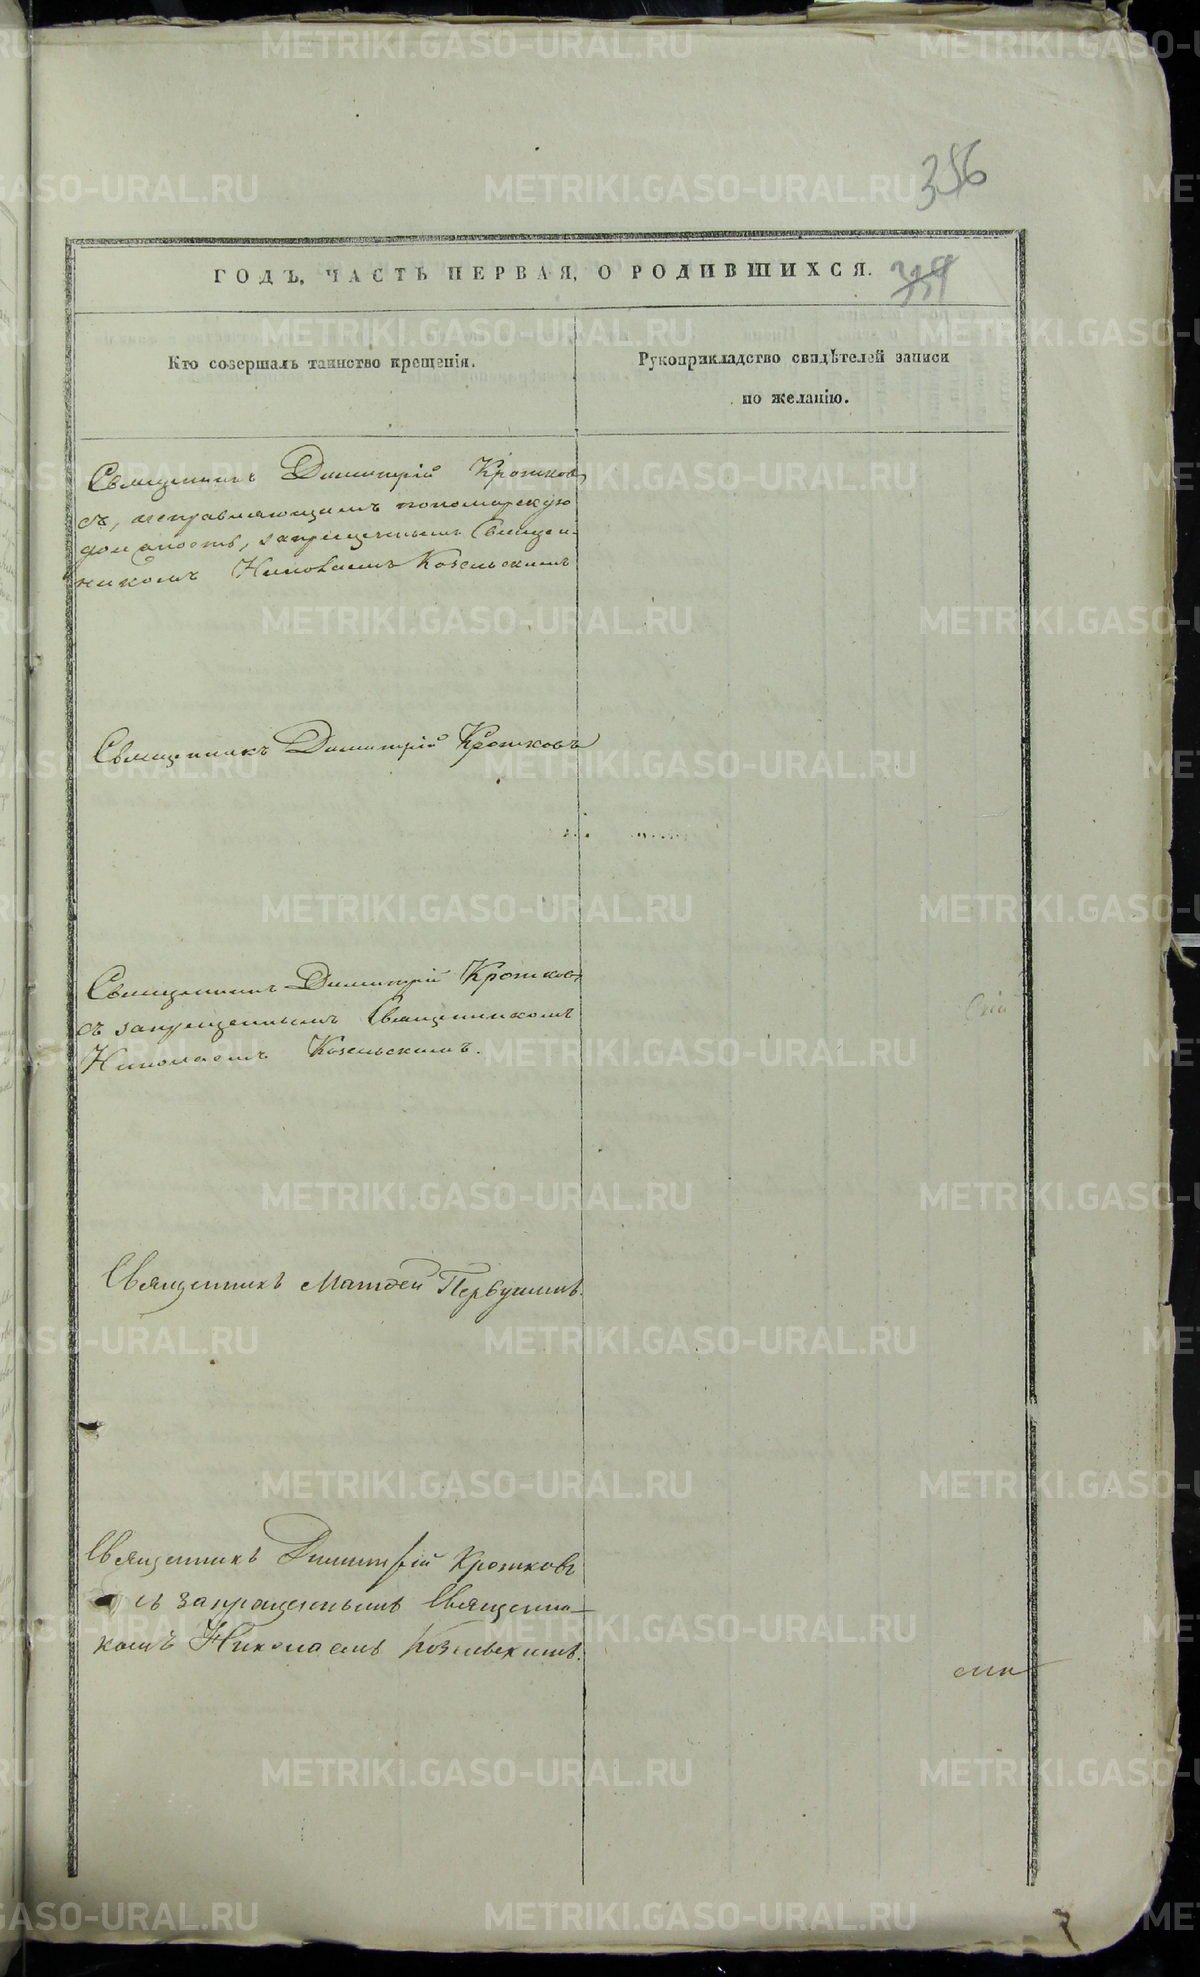 356
ГОДЪ, ЧАСТЬ ПЕРВАЯ, О РОДИВШИХСЯ.
Кто совершалъ таинство крещенія.
Рукоприкладство свидѣтелей записи
по желанію.
Священникъ Димитрій Кротковъ
съ, исправляющимъ пономарскую
должность, запрещеннымъ Священ-
никомъ Николаемъ Козельскимъ
Священникъ Димитрій Кротковъ
Священникъ Димитрій Кротковъ
съ запрещеннымъ Священникомъ
Николаемъ Козельскимъ.
Священникъ Матѳей Первушинъ.
Священникъ Димитрій Кротковъ
съ запрещеннымъ Священни-
комъ Николаемъ Козельскимъ.
METRIKI.GASO-URAL.RU